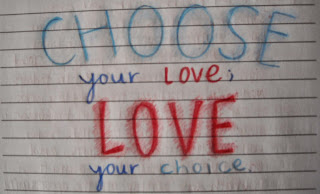 CHOOSE
your LOVE;
LOVE
your choice.